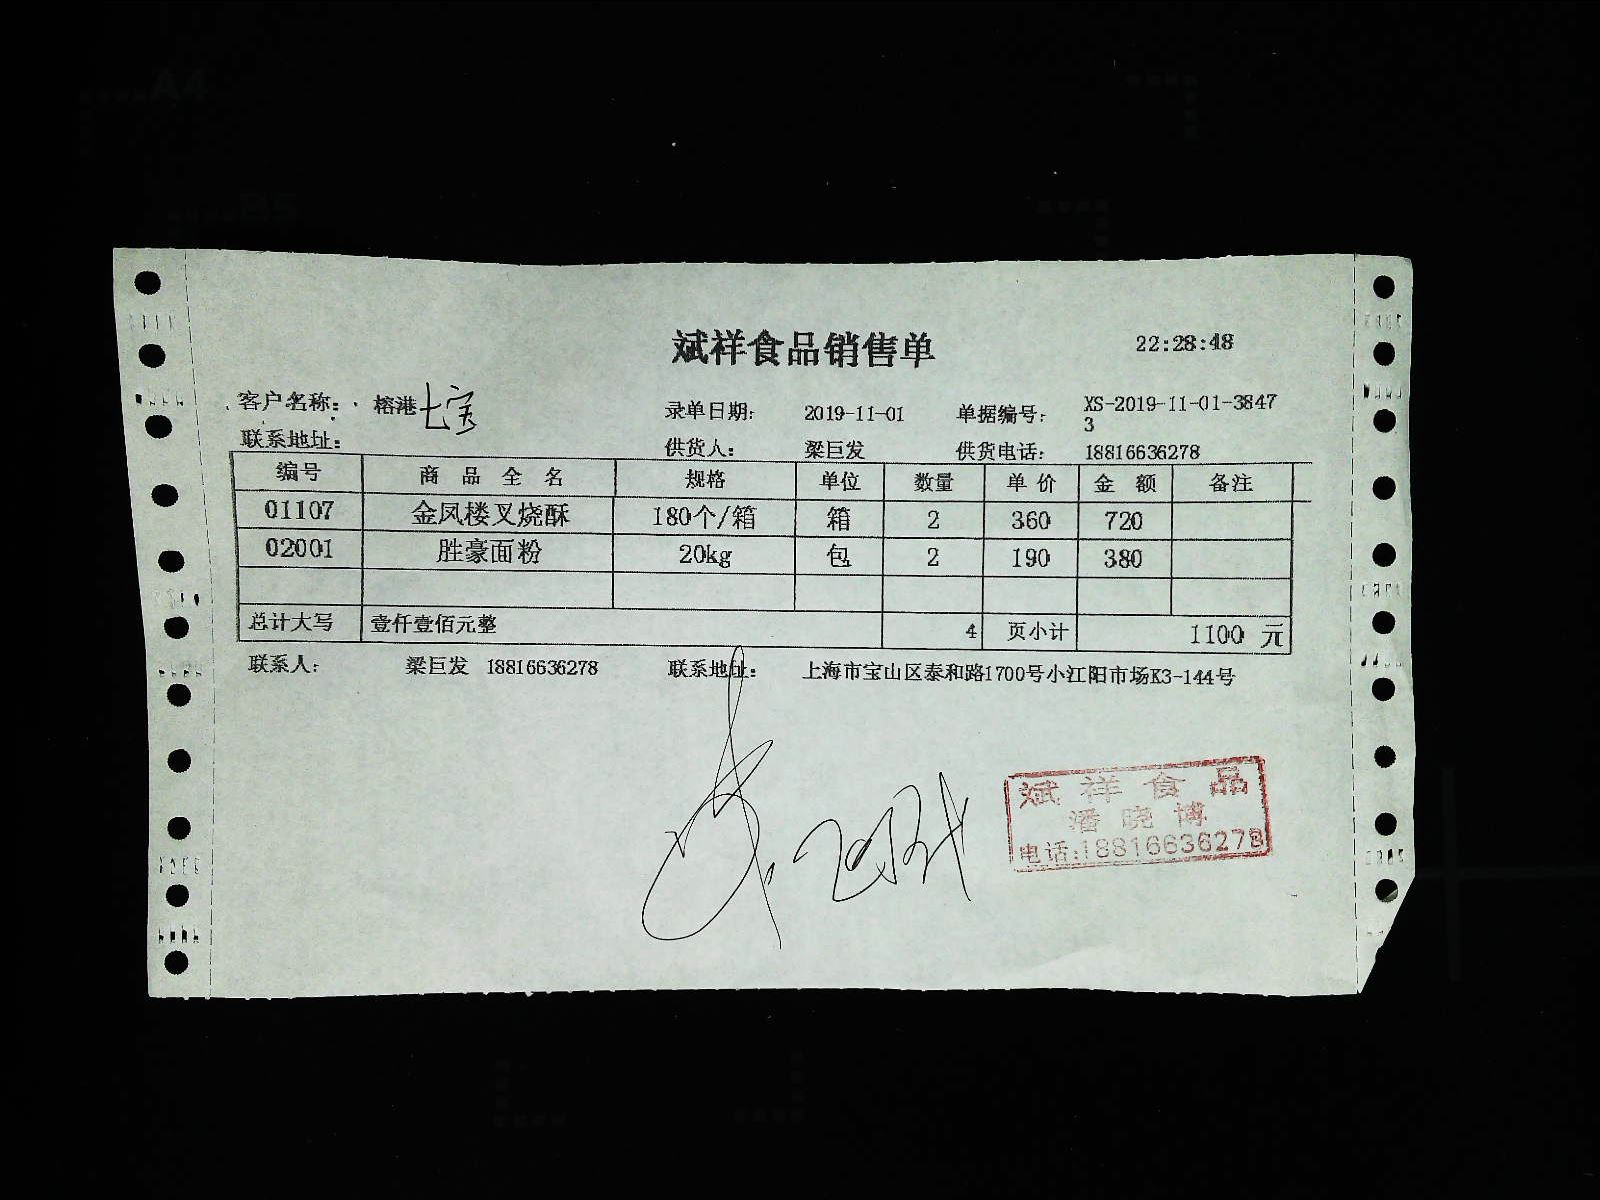 斌祥食品销售单 22:28:48
客户名称: 榕港七宝 录单日期: 2019-11-01 单据编号: XS-2019-11-01-3847
3
联系地址: 供货人: 梁巨发 供货电话: 18816636278
编号 商品全名 规格 单位 数量 单价 金额 备注
01107 金凤楼叉烧酥 180个/箱 箱 2 360 720
02001 胜豪面粉 20kg 包 2 190 380
总计大写 壹仟壹佰元整 4 页小计 1100 元
联系人: 梁巨发 18816636278 联系地址: 上海市宝山区泰和路1700号小江阳市场K3-144号
斌祥食品
潘晓博
电话:18816636278